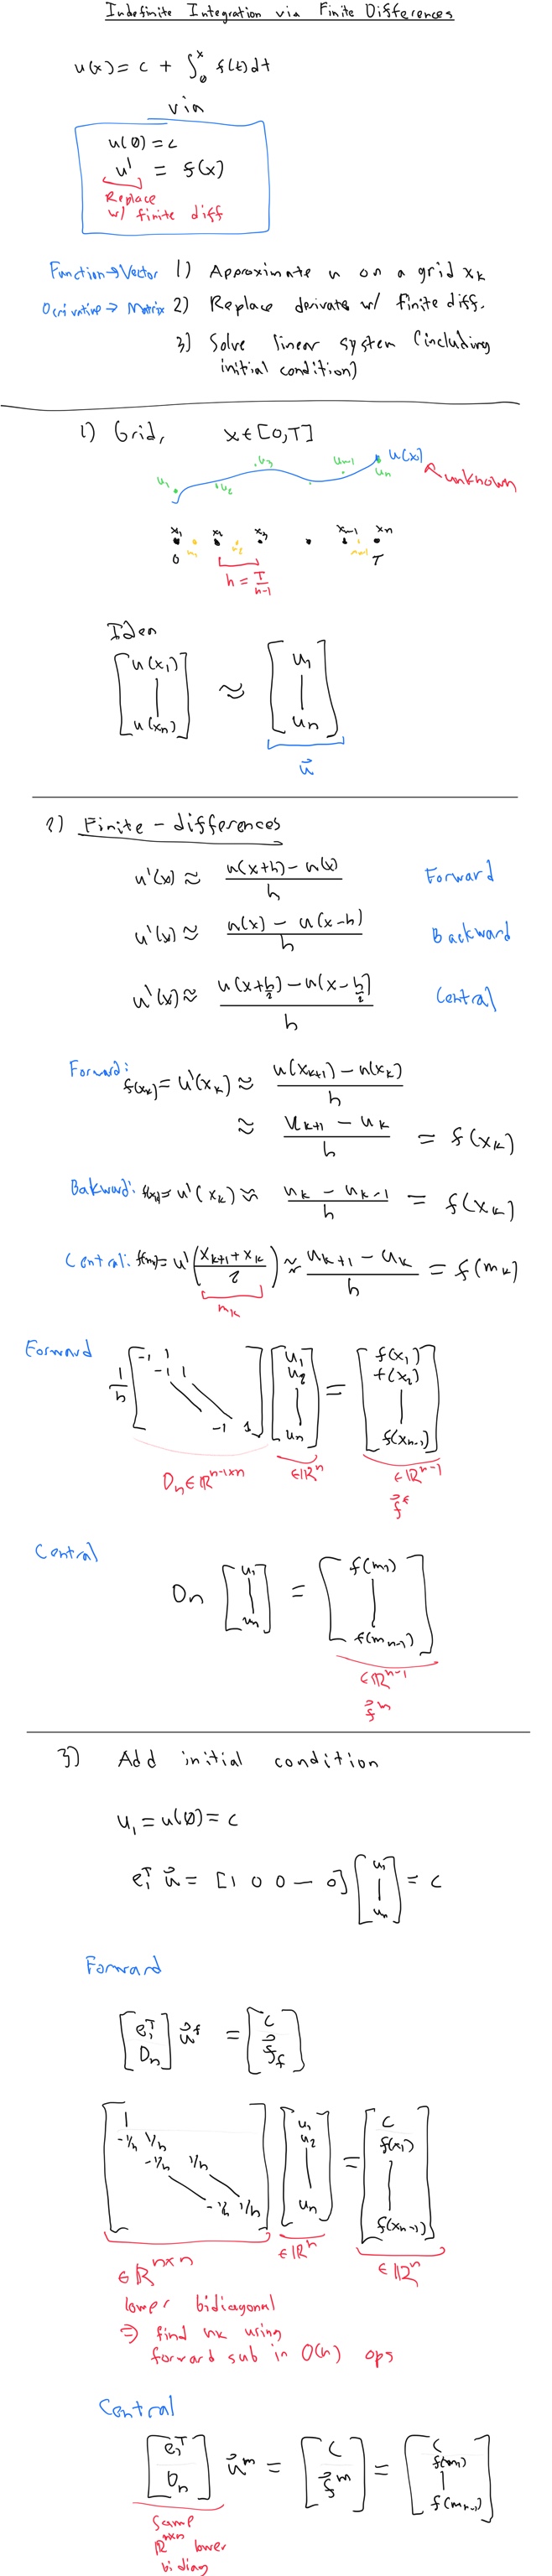 Indefinite Integration via Finite Differences
u(x) = c + ∫₀ˣ f(t)dt
via
u(0) = c
u' = f(x)
Replace
w/ finite diff
Function → Vector 1) Approximate u on a grid xₖ
Derivative → Matrix 2) Replace derivate w/ finite diff.
3) Solve linear system (including
initial condition)
1) Grid, x ∈ [0,T]
u₁ u₂ u₃ uₙ₋₁ uₙ u(x) unknown
x₁ x₂ x₃ xₙ₋₁ xₙ
0 m₁ m₂ mₙ₋₁ T
h = T/(n-1)
Idea
[u(x₁) | u(xₙ)] ≈ [u₁ | uₙ]
u⃗
2) Finite - differences
u'(x) ≈ (u(x+h) - u(x))/h Forward
u'(x) ≈ (u(x) - u(x-h))/h Backward
u'(x) ≈ (u(x+h/2) - u(x-h/2))/h Central
Forward: f(xₖ) = u'(xₖ) ≈ (u(xₖ₊₁) - u(xₖ))/h
≈ (uₖ₊₁ - uₖ)/h = f(xₖ)
Bakward: f(xₖ) = u'(xₖ) ≈ (uₖ - uₖ₋₁)/h = f(xₖ)
Central: f(mₖ) = u'((xₖ₊₁ + xₖ)/2) ≈ (uₖ₊₁ - uₖ)/h = f(mₖ)
mₖ
Forward
1/h [-1 1 -1 1 -1 1] [u₁ u₂ | uₙ] = [f(x₁) f(x₂) | f(xₙ₋₁)]
Dₙ ∈ ℝⁿ⁻¹ˣⁿ ∈ ℝⁿ ∈ ℝⁿ⁻¹
f⃗ᶠ
Central
Dₙ [u₁ | uₙ] = [f(m₁) | f(mₙ₋₁)]
∈ ℝⁿ⁻¹
f⃗ᵐ
3) Add initial condition
u₁ = u(0) = c
e₁ᵀ u⃗ = [1 0 0 — 0] [u₁ | uₙ] = c
Forward
[e₁ᵀ Dₙ] u⃗ᶠ = [c f⃗f]
[1 -1/h 1/h -1/h 1/h -1/h 1/h] [u₁ u₂ | uₙ] = [c f(x₁) | f(xₙ₋₁)]
∈ ℝⁿˣⁿ ∈ ℝⁿ ∈ ℝⁿ
lower bidiagonal
⇒ find uₖ using
forward sub in O(n) ops
Central
[e₁ᵀ Dₙ] u⃗ᵐ = [c f⃗ᵐ] = [c f(m₁) | f(mₙ₋₁)]
Same
ℝⁿˣⁿ lower
bidiag